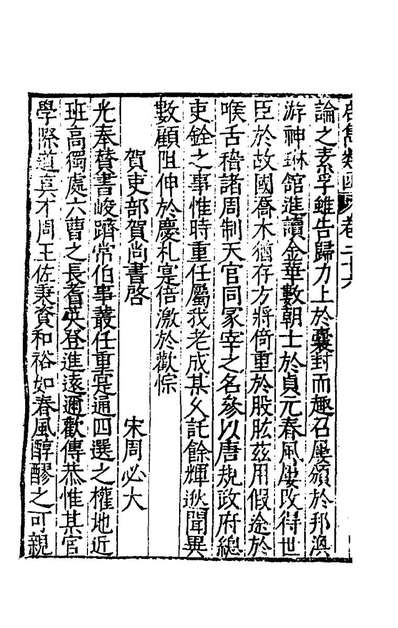 啓雋類函 卷二十六
論之素孚雖告歸力上於囊封而趣召屢頒於邦渙
游神琳館進讀金華數朝士於貞元春風屢改得世
臣於故國喬木猶存方將倚重於股肱茲用假途於
喉舌稽諸周制天官同冡宰之名參以唐規政府總
吏銓之事惟時重任屬我老成某乆託餘輝逖聞異
數顧阻伸於慶札寔倍激於歡悰
賀吏部賀尚書啓 宋周必大
光奉贊書峻躋常伯事叢任重寔通四選之權地近
班高獨處六曹之長耆英登進遠邇歡傳恭惟某官
學際道真才周王佐秉資和裕如春風醇醪之可親